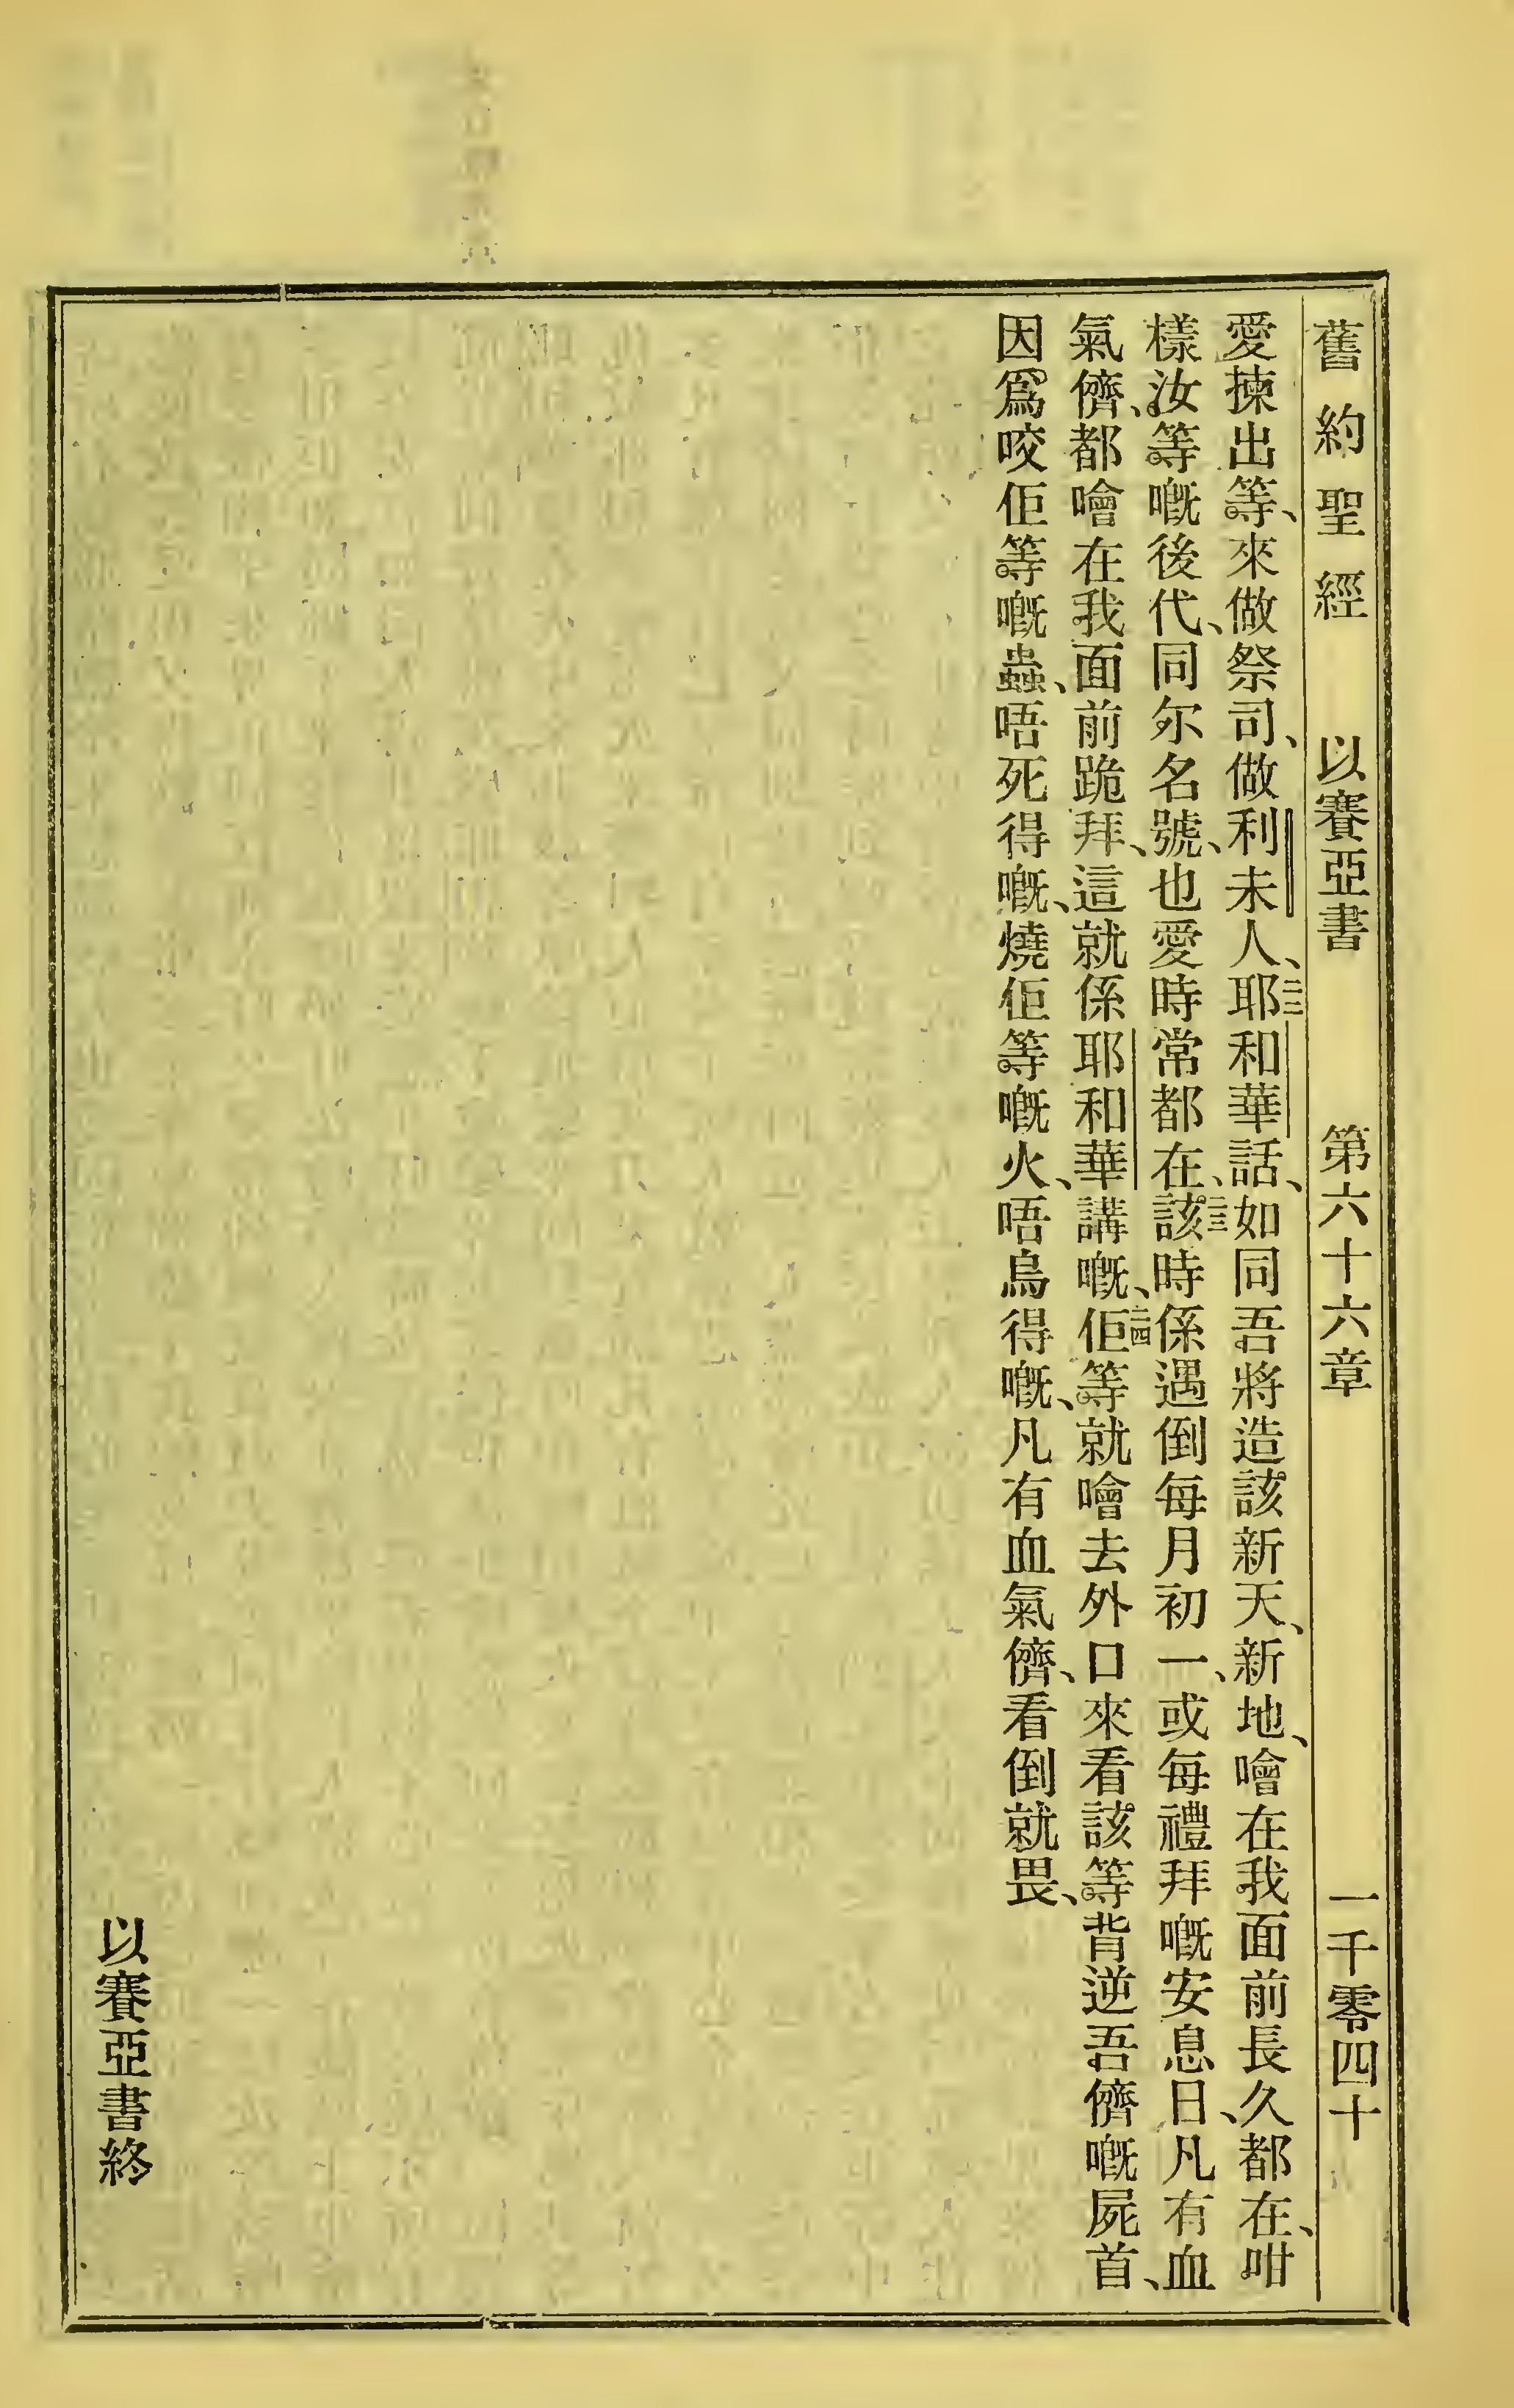 舊約聖經 以賽亞書 第六十六章 一千零四十
愛揀出等、來做祭司、做利未人、二二耶和華話、如同吾將造該新天、新地、噲在我面前長久都在、咁
樣汝等嘅後代、同尔名號、也愛時常都在、二三該時係遇倒每月初一、或每禮拜嘅安息日、凡有血
氣儕、都噲在我面前跪拜、這就係耶和華講嘅、二四佢等就噲去外口來看該等背逆吾儕嘅屍首、
因爲咬佢等嘅蟲、唔死得嘅、燒佢等嘅火、唔烏得嘅、凡有血氣儕、看倒就畏、
以賽亞書終